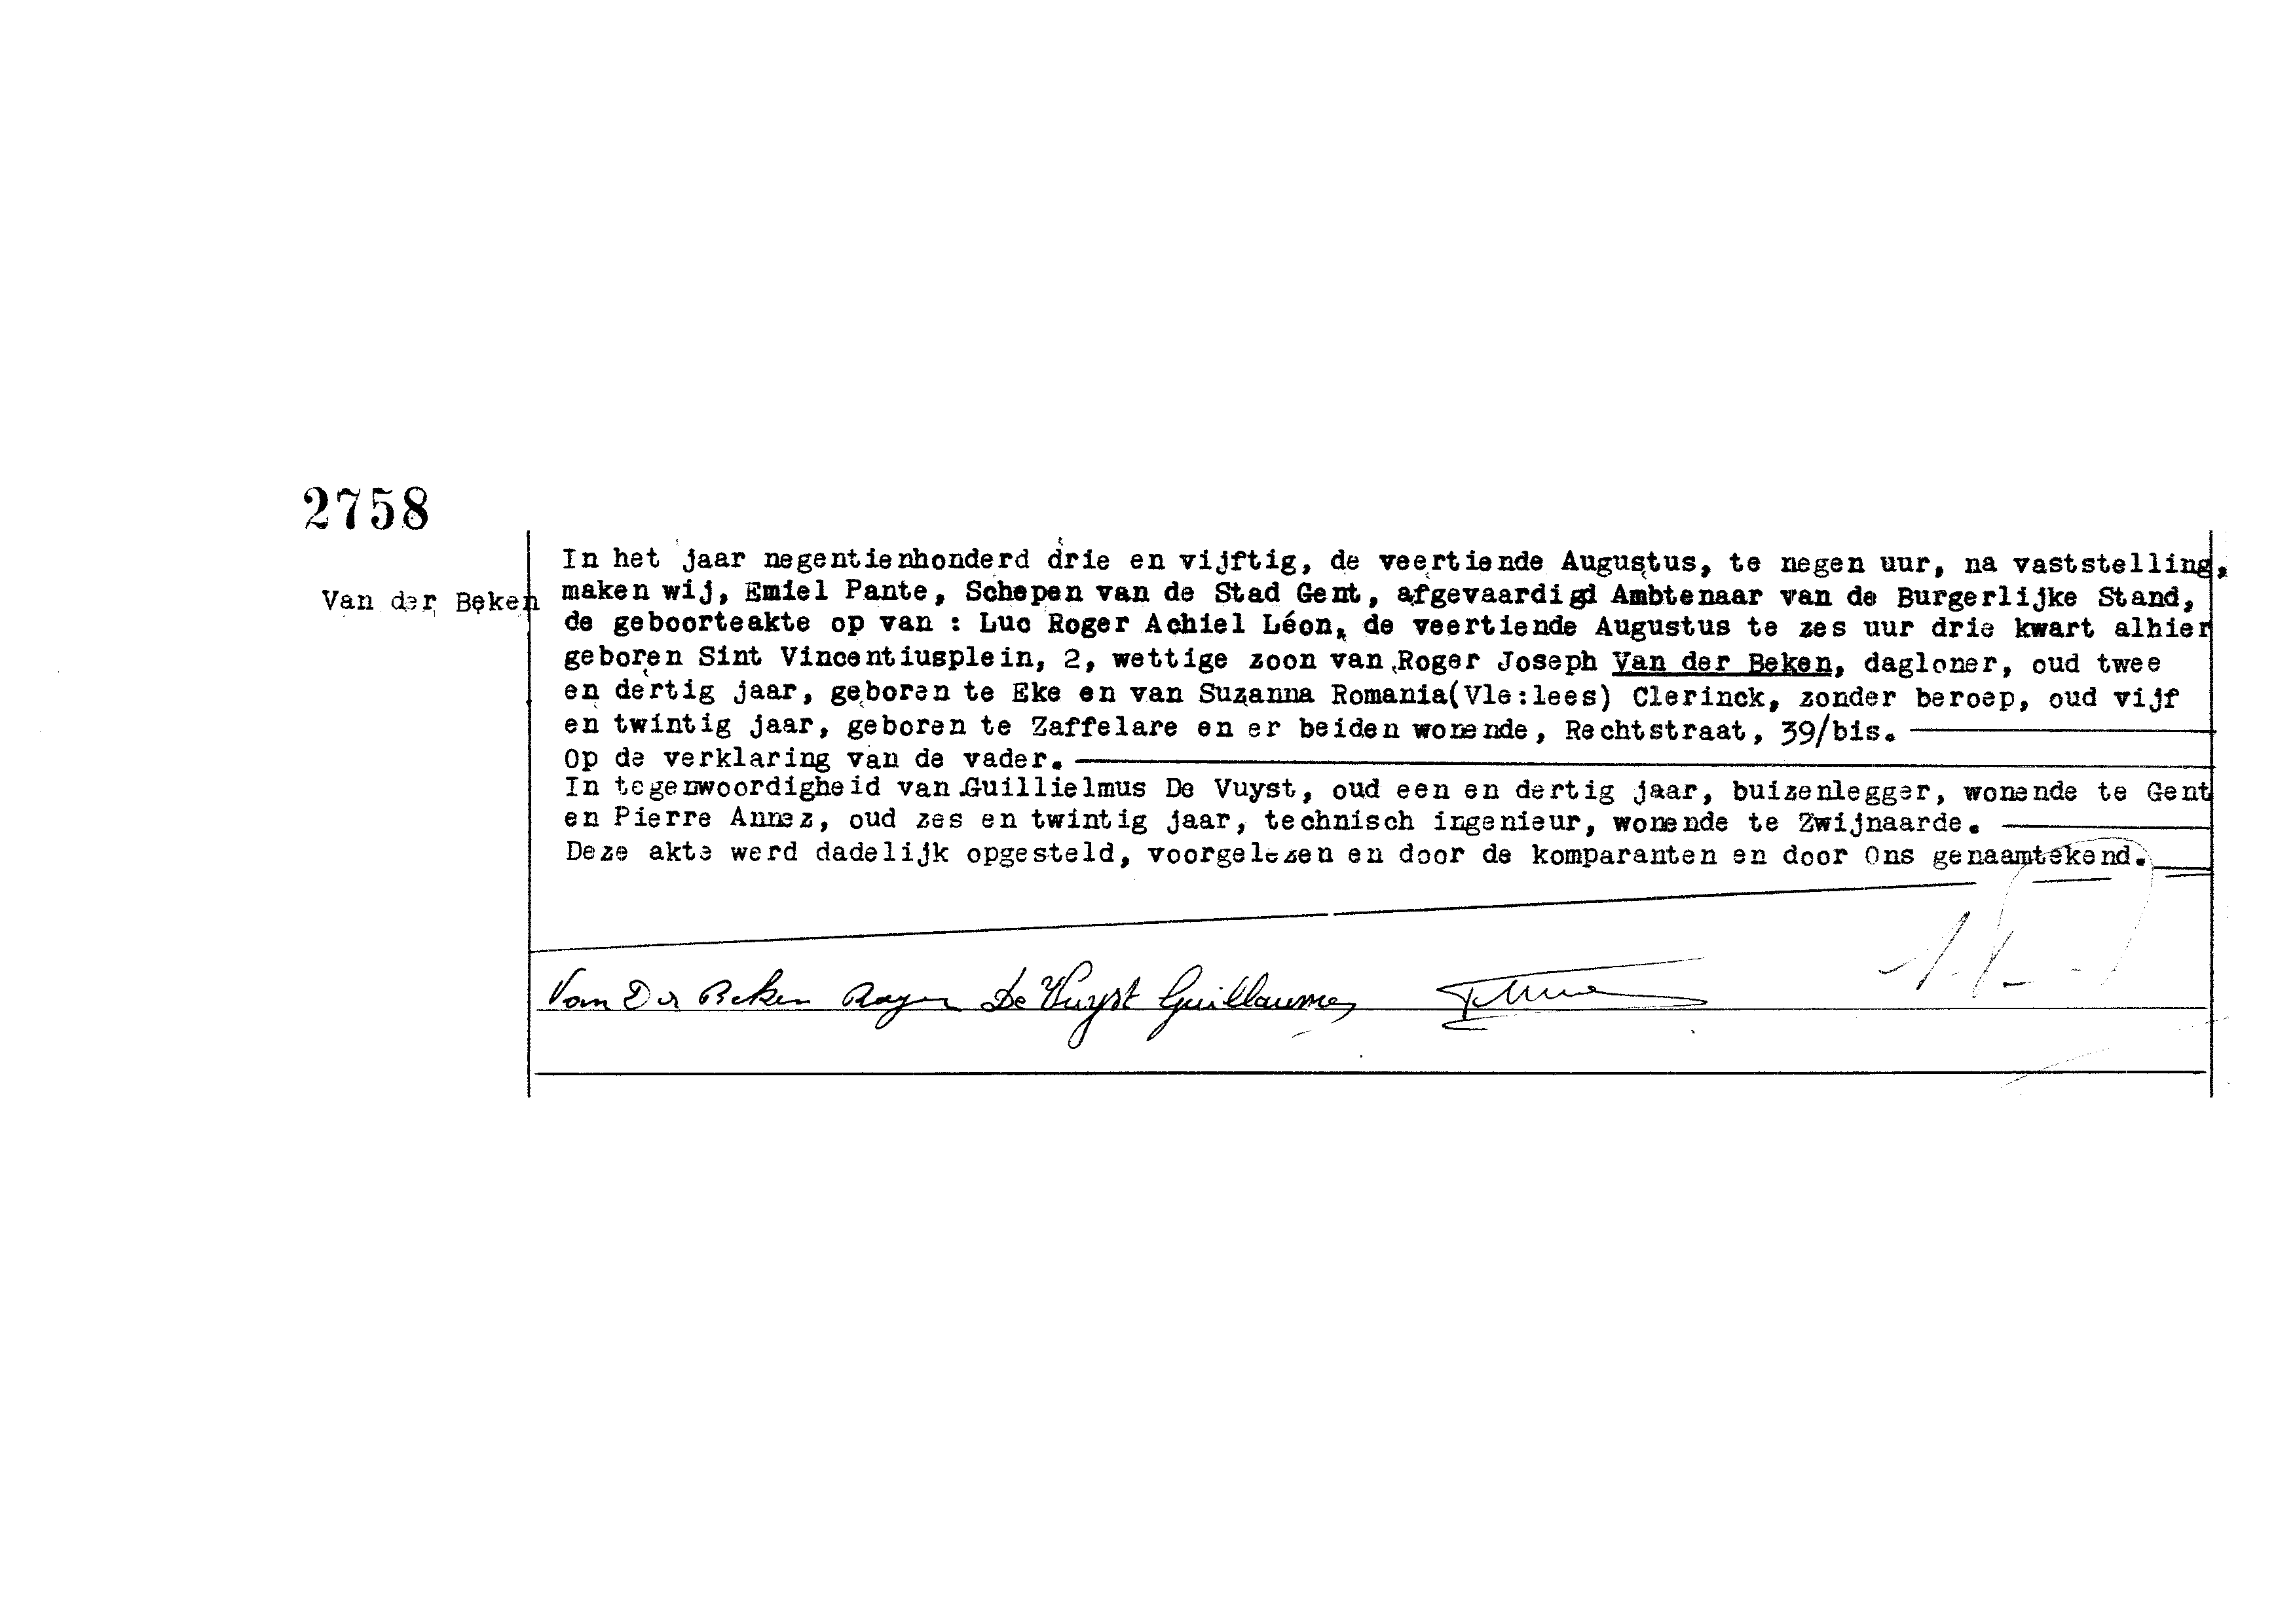 2758
Van der Beken
In het jaar negentienhonderd drie en vijftig, de veertiende Augustus, te negen uur, na vaststelling,
maken wij, Emiel Pante, Schepen van de Stad Gent, afgevaardigd Ambtenaar van de Burgerlijke Stand,
de geboorteakte op van : Luc Roger Achiel Léon, de veertiende Augustus te zes uur drie kwart alhier
geboren Sint Vincentiusplein, 2, wettige zoon van Roger Joseph Van der Beken, dagloner, oud twee
en dertig jaar, geboren te Eke en van Suzanna Romania(Vle:lees) Clerinck, zonder beroep, oud vijf
en twintig jaar, geboren te Zaffelare en er beiden wonende, Rechtstraat, 39/bis.
Op de verklaring van de vader.
In tegenwoordigheid van Guillielmus De Vuyst, oud een en dertig jaar, buizenlegger, wonende te Gent
en Pierre Annez, oud zes en twintig jaar, technisch ingenieur, wonende te Zwijnaarde.
Deze akte werd dadelijk opgesteld, voorgelezen en door de komparanten en door Ons genaamtekend.
Van Der Beken Roger De Vuyst Guillaume